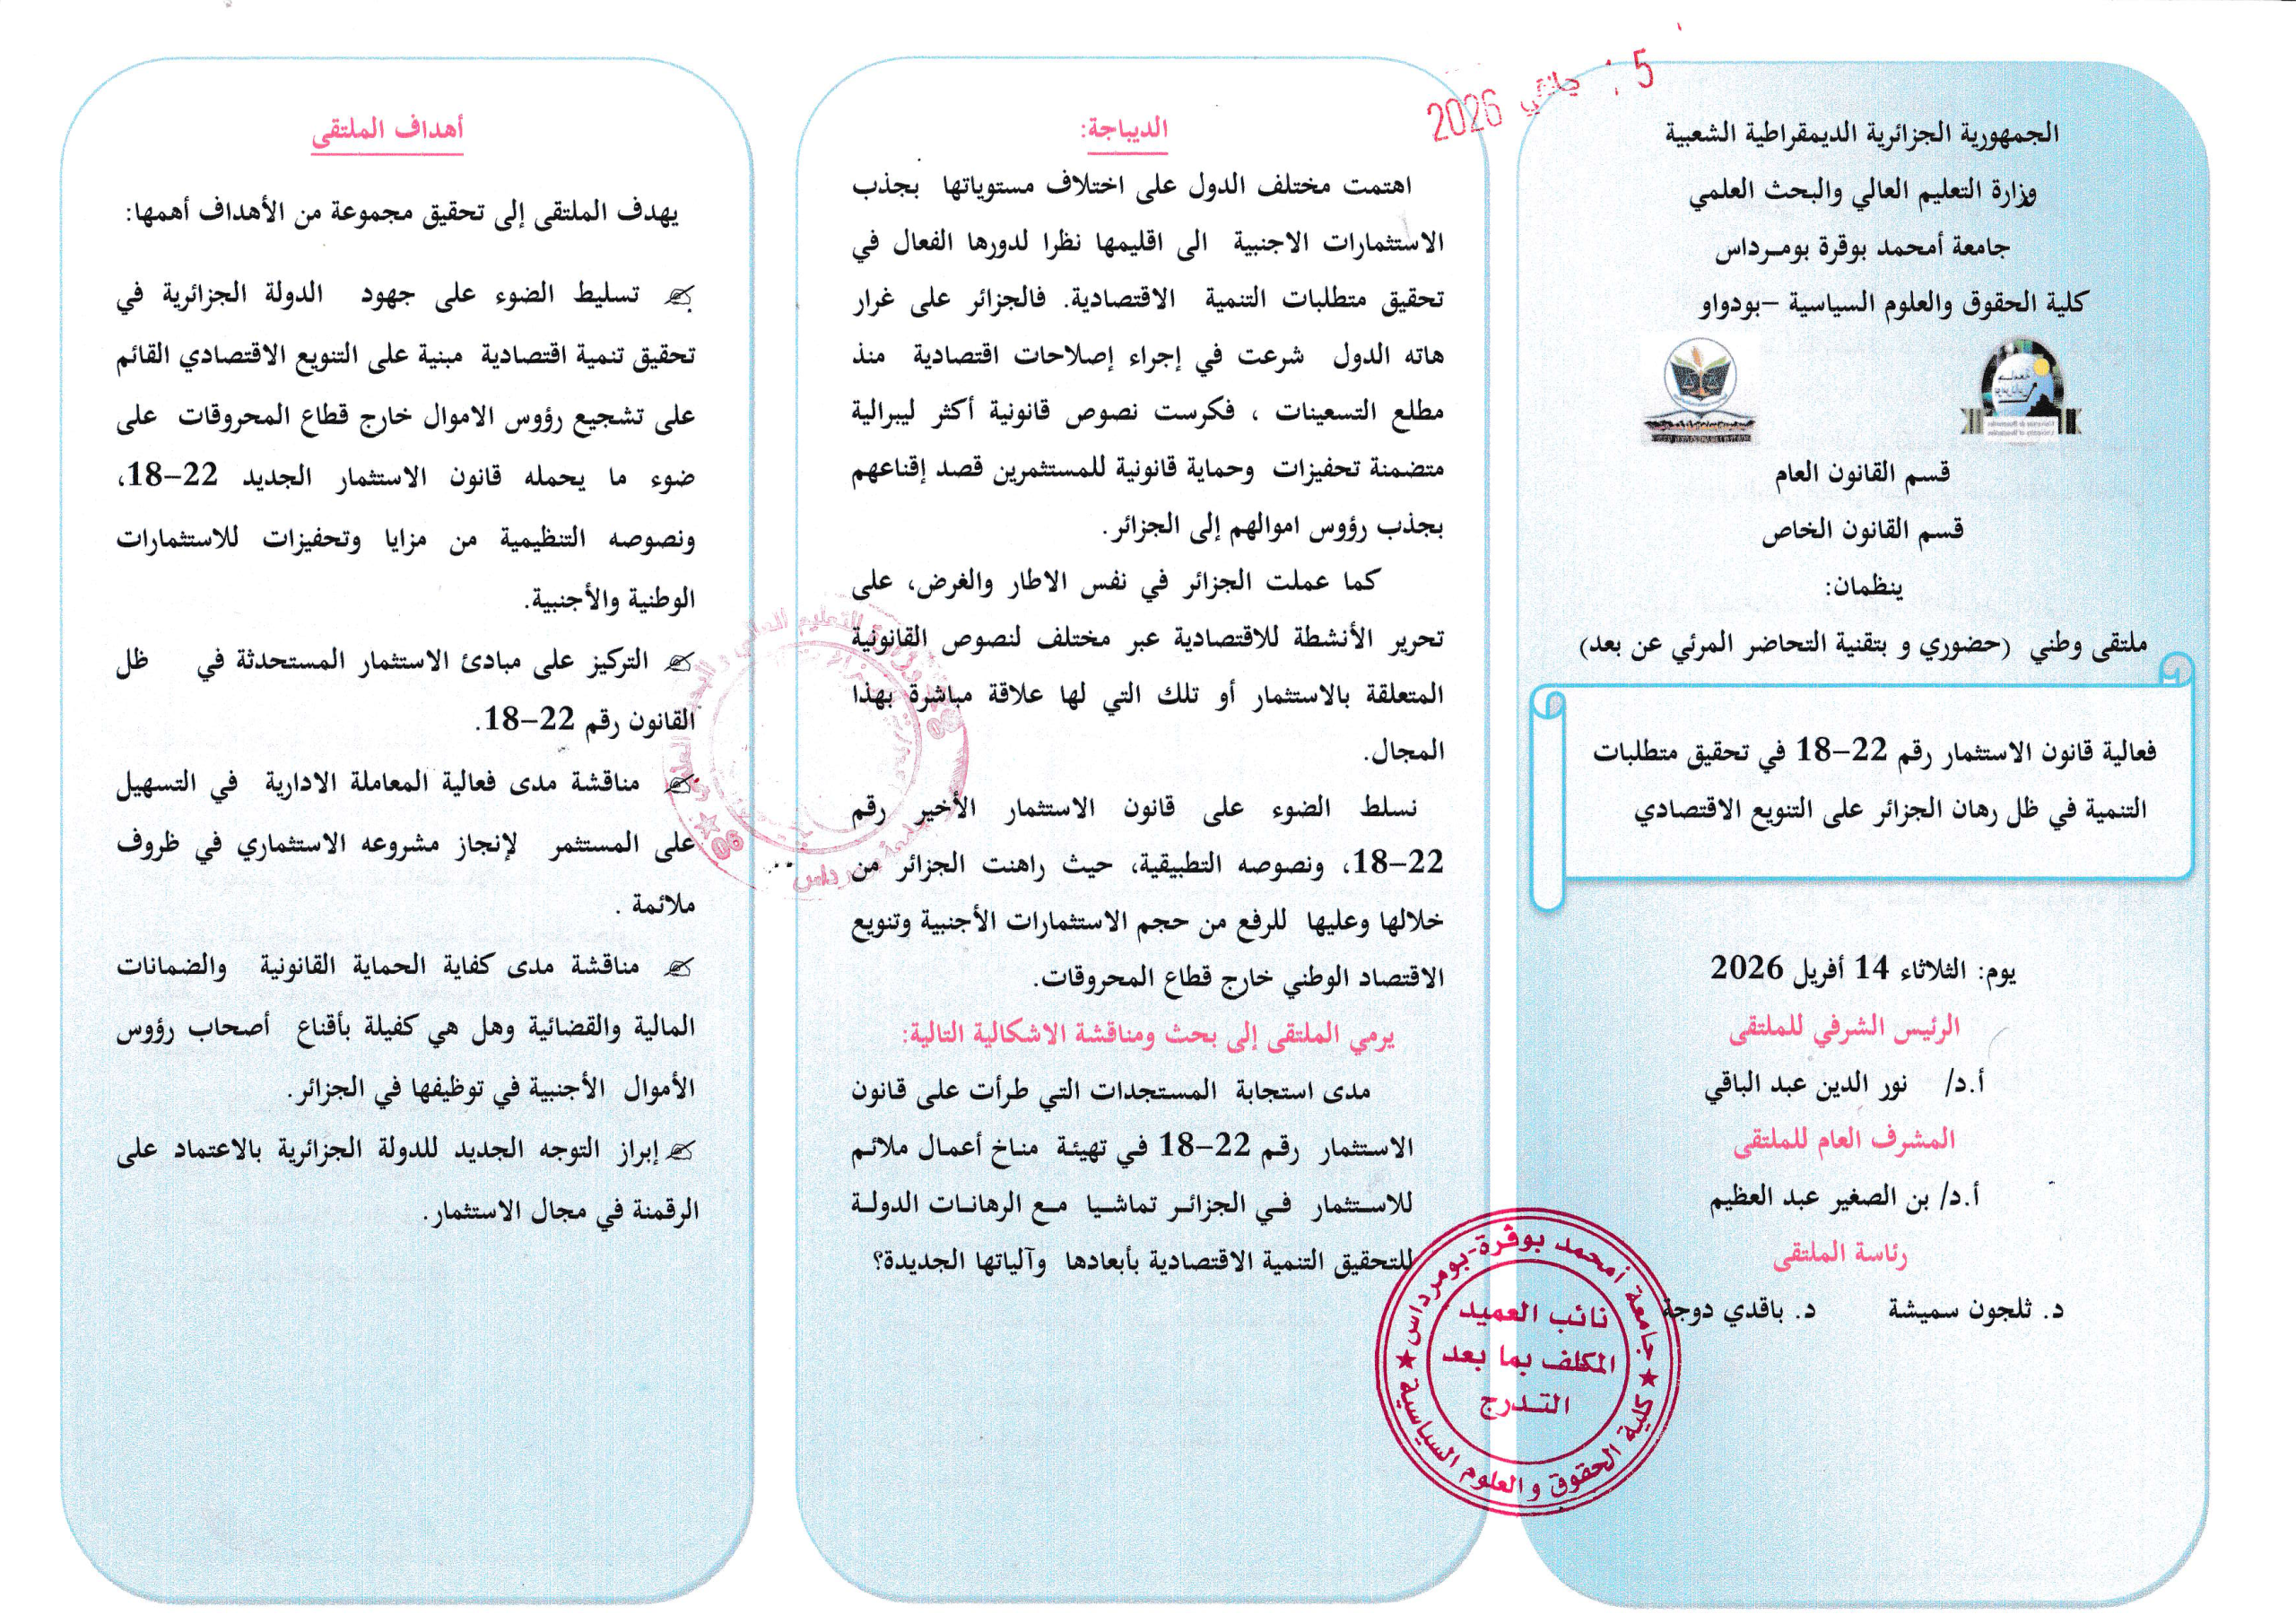 5 جانفي 2026
الجمهورية الجزائرية الديمقراطية الشعبية
وزارة التعليم العالي والبحث العلمي
جامعة أمحمد بوقرة بومـرداس
كلية الحقوق والعلوم السياسية –بودواو
قسم القانون العام
قسم القانون الخاص
ينظمان:
ملتقى وطني (حضوري و بتقنية التحاضر المرئي عن بعد)
فعالية قانون الاستثمار رقم 22–18 في تحقيق متطلبات
التنمية في ظل رهان الجزائر على التنويع الاقتصادي
يوم: الثلاثاء 14 أفريل 2026
الرئيس الشرفي للملتقى
أ.د/ نور الدين عبد الباقي
المشرف العام للملتقى
أ.د/ بن الصغير عبد العظيم
رئاسة الملتقى
د. ثلجون سميشة د. باقدي دوجة
جامعة أمحمد بوقرة-بومرداس
نائب العميد
المكلف بما بعد
التـدرج
كلية الحقوق و العلوم السياسية
الديباجة:
اهتمت مختلف الدول على اختلاف مستوياتها بجذب
الاستثمارات الاجنبية الى اقليمها نظرا لدورها الفعال في
تحقيق متطلبات التنمية الاقتصادية. فالجزائر على غرار
هاته الدول شرعت في إجراء إصلاحات اقتصادية منذ
مطلع التسعينات ، فكرست نصوص قانونية أكثر ليبرالية
متضمنة تحفيزات وحماية قانونية للمستثمرين قصد إقناعهم
بجذب رؤوس اموالهم إلى الجزائر.
كما عملت الجزائر في نفس الاطار والغرض، على
تحرير الأنشطة للاقتصادية عبر مختلف لنصوص القانونية
المتعلقة بالاستثمار أو تلك التي لها علاقة مباشرة بهذا
المجال.
نسلط الضوء على قانون الاستثمار الأخير رقم
22–18، ونصوصه التطبيقية، حيث راهنت الجزائر من
خلالها وعليها للرفع من حجم الاستثمارات الأجنبية وتنويع
الاقتصاد الوطني خارج قطاع المحروقات.
يرمي الملتقى إلى بحث ومناقشة الاشكالية التالية:
مدى استجابة المستجدات التي طرأت على قانون
الاستثمار رقم 22–18 في تهيئة مناخ أعمال ملائم
للاسـتثمار فـي الجزائـر تماشـيا مـع الرهانـات الدولـة
للتحقيق التنمية الاقتصادية بأبعادها وآلياتها الجديدة؟
أهداف الملتقى
يهدف الملتقى إلى تحقيق مجموعة من الأهداف أهمها:
تسليط الضوء على جهود الدولة الجزائرية في
تحقيق تنمية اقتصادية مبنية على التنويع الاقتصادي القائم
على تشجيع رؤوس الاموال خارج قطاع المحروقات على
ضوء ما يحمله قانون الاستثمار الجديد 22–18،
ونصوصه التنظيمية من مزايا وتحفيزات للاستثمارات
الوطنية والأجنبية.
التركيز على مبادئ الاستثمار المستحدثة في ظل
القانون رقم 22–18.
مناقشة مدى فعالية المعاملة الادارية في التسهيل
على المستثمر لإنجاز مشروعه الاستثماري في ظروف
ملائمة .
مناقشة مدى كفاية الحماية القانونية والضمانات
المالية والقضائية وهل هي كفيلة بأقناع أصحاب رؤوس
الأموال الأجنبية في توظيفها في الجزائر.
إبراز التوجه الجديد للدولة الجزائرية بالاعتماد على
الرقمنة في مجال الاستثمار.